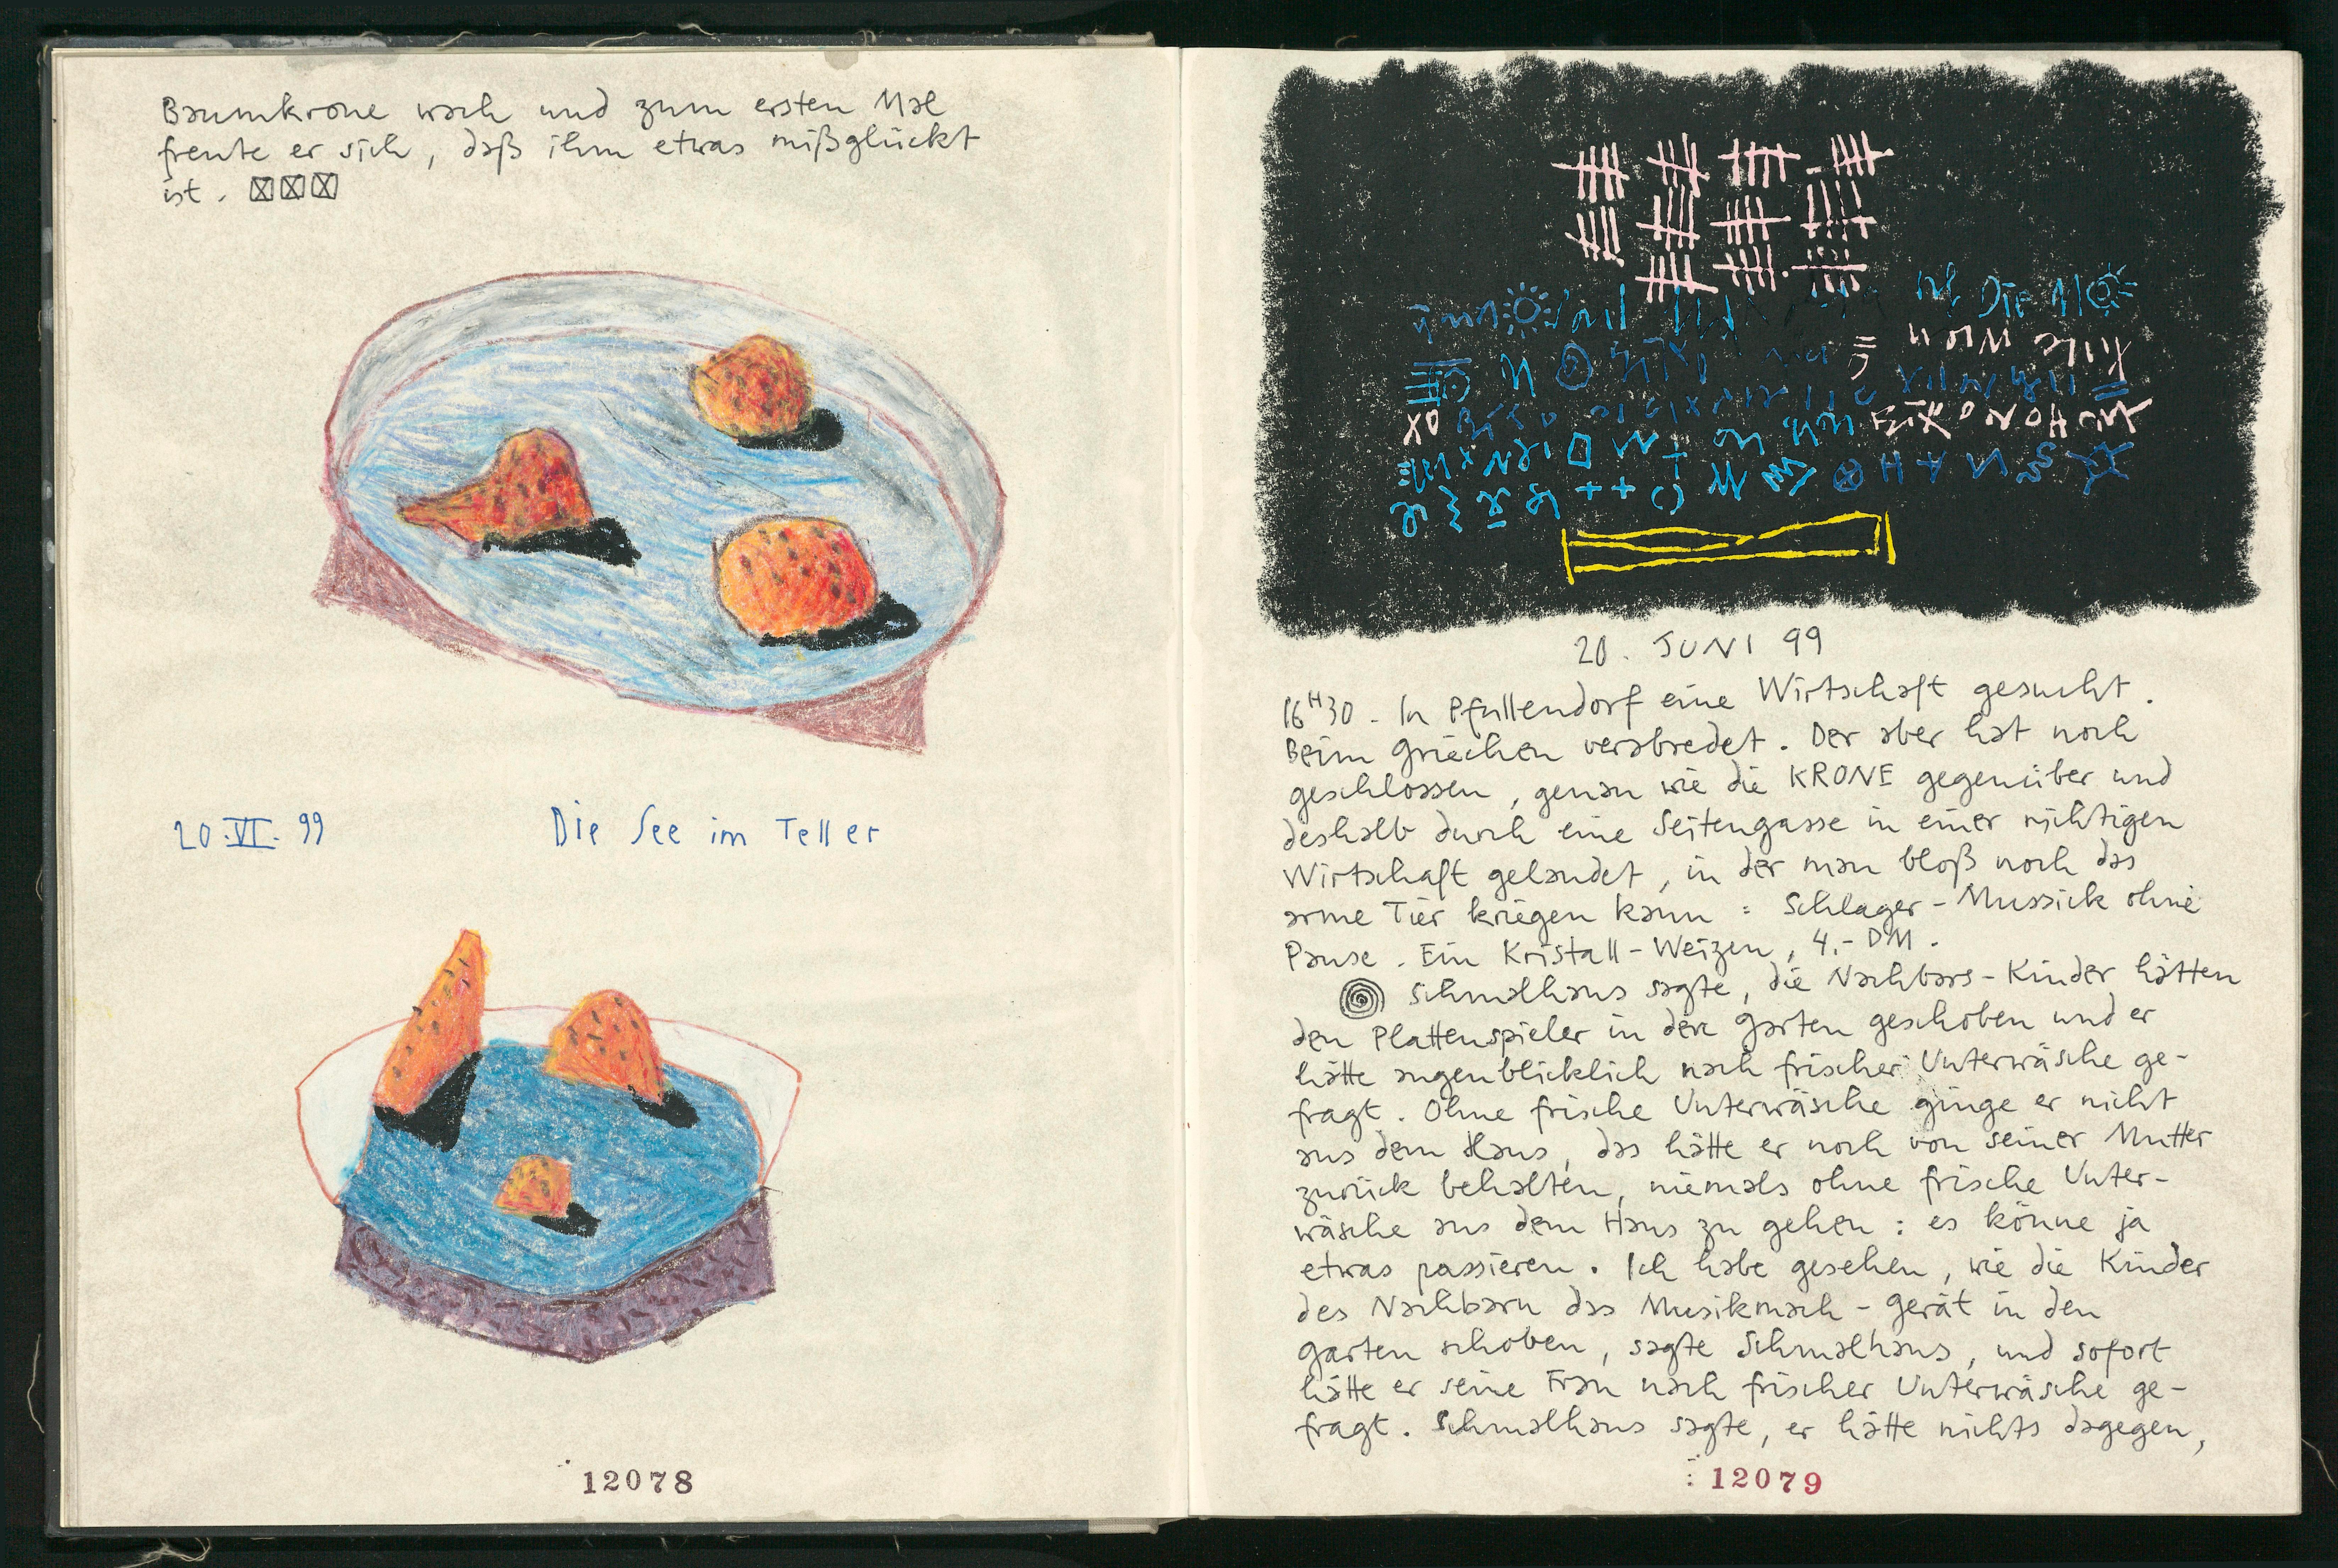 Baumkrone wach und zum ersten Mal
freute er sich, daß ihm etwas mißglückt
ist.
20.VI.99 Die See im Teller
12078
Die
20. JUNI 99
16H30 - In Pfullendorf eine Wirtschaft gesucht.
Beim Griechen verabredet. Der aber hat noch
geschlossen, genau wie die KRONE gegenüber und
deshalb durch eine Seitengasse in einer richtigen
Wirtschaft gelandet, in der man bloß noch das
arme Tier kriegen kann: Schlager-Mussick ohne
Pause. Ein Kristall-Weizen, 4,- DM.
Schmalhans sagte, die Nachbars-Kinder hätten
den Plattenspieler in den Garten geschoben und er
hätte augenblicklich nach frischer Unterwäsche ge-
fragt. Ohne frische Unterwäsche ginge er nicht
aus dem Haus, das hätte er noch von seiner Mutter
zurück behalten, niemals ohne frische Unter-
wäsche aus dem Haus zu gehen: es könne ja
etwas passieren. Ich habe gesehen, wie die Kinder
des Nachbarn das Musikmach-Gerät in den
Garten schoben, sagte Schmalhans, und sofort
hätte er seine Frau nach frischer Unterwäsche ge-
fragt. Schmalhans sagte, er hätte nichts dagegen,
12079